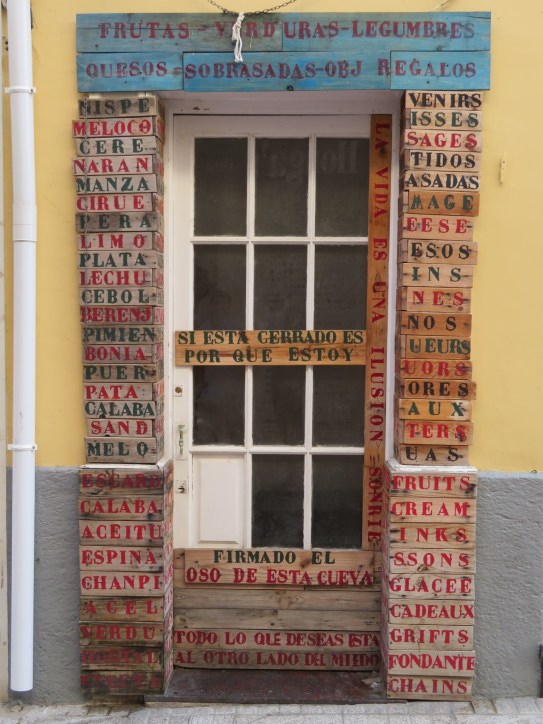 FRUTAS-VERDURAS-LEGUMBRES
QUESOS-SOBRASADAS-OBJ REGALOS
NISPE
MELOCO
CERE
NARAN
MANZA
CIRUE
PERA
LIMO
PLATA
LECHU
CEBOL
BERENJ
PIMIEN
BONIA
PUER
PATA
CALABA
SAND
MELO
ESCARO
CALABA
ACEITU
ESPINA
CHANPI
ACEL
VERDU
LA VIDA ES UNA ILUSION SONRIE
SI ESTA CERRADO ES
POR QUE ESTOY
FIRMADO EL
OSO DE ESTA CUEVA
TODO LO QUE DESEAS ESTA
AL OTRO LADO DEL MIEDO
VENIRS
ISSES
SAGES
TIDOS
ASADAS
MAGE
EESE
ESOS
INS
NES
NOS
UEURS
UORS
ORES
AUX
TERS
UAS
FRUITS
CREAM
INKS
SSONS
GLACEE
CADEAUX
GRIFTS
FONDANTE
CHAINS